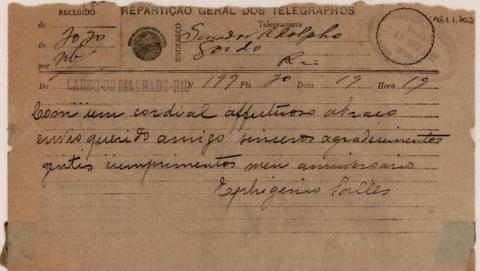 REPARTIÇÃO GERAL DOS TELEGRAPHOS.
AG1.1.702
RECEBIDO
de
de
por
ENDEREÇO
Telegramma
Senador Adolpho
Gordo
Rio
De LARGO DO MACHADO-RIO N. 199 Pls 20 Data 19 Hora 19
Com um cordial affectuoso abraco
envio querido amigo sinceros agradecimentos
gentis cumprimentos meu anniversario
Ephigenio Salles